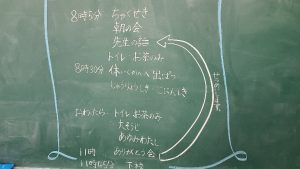 8時5分 ちゃくせき
朝の会
先生の話
トイレ お茶のみ
8時30分 体いくかんへ出ぱつ
しゅうりょうしき・にんしき
おわったら トイレ お茶のみ
大そうじ
あゆみわたし
11時 ありがとう会
11時45分 下校
せつめいします。